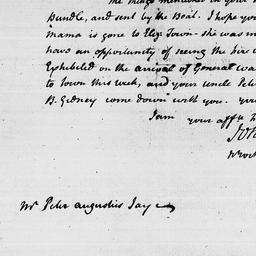 the things mentioned in your
Bundle, and sent by the Boat. I hope you
mama is gone to Eliz. Town - she was m
have an opportunity of seeing the fire w
Exhibited on the arrival of General wa
to Town this week, and your uncle Peter
B. Gidney come down with you. your
I am your affte
Mr Peter augustus Jay